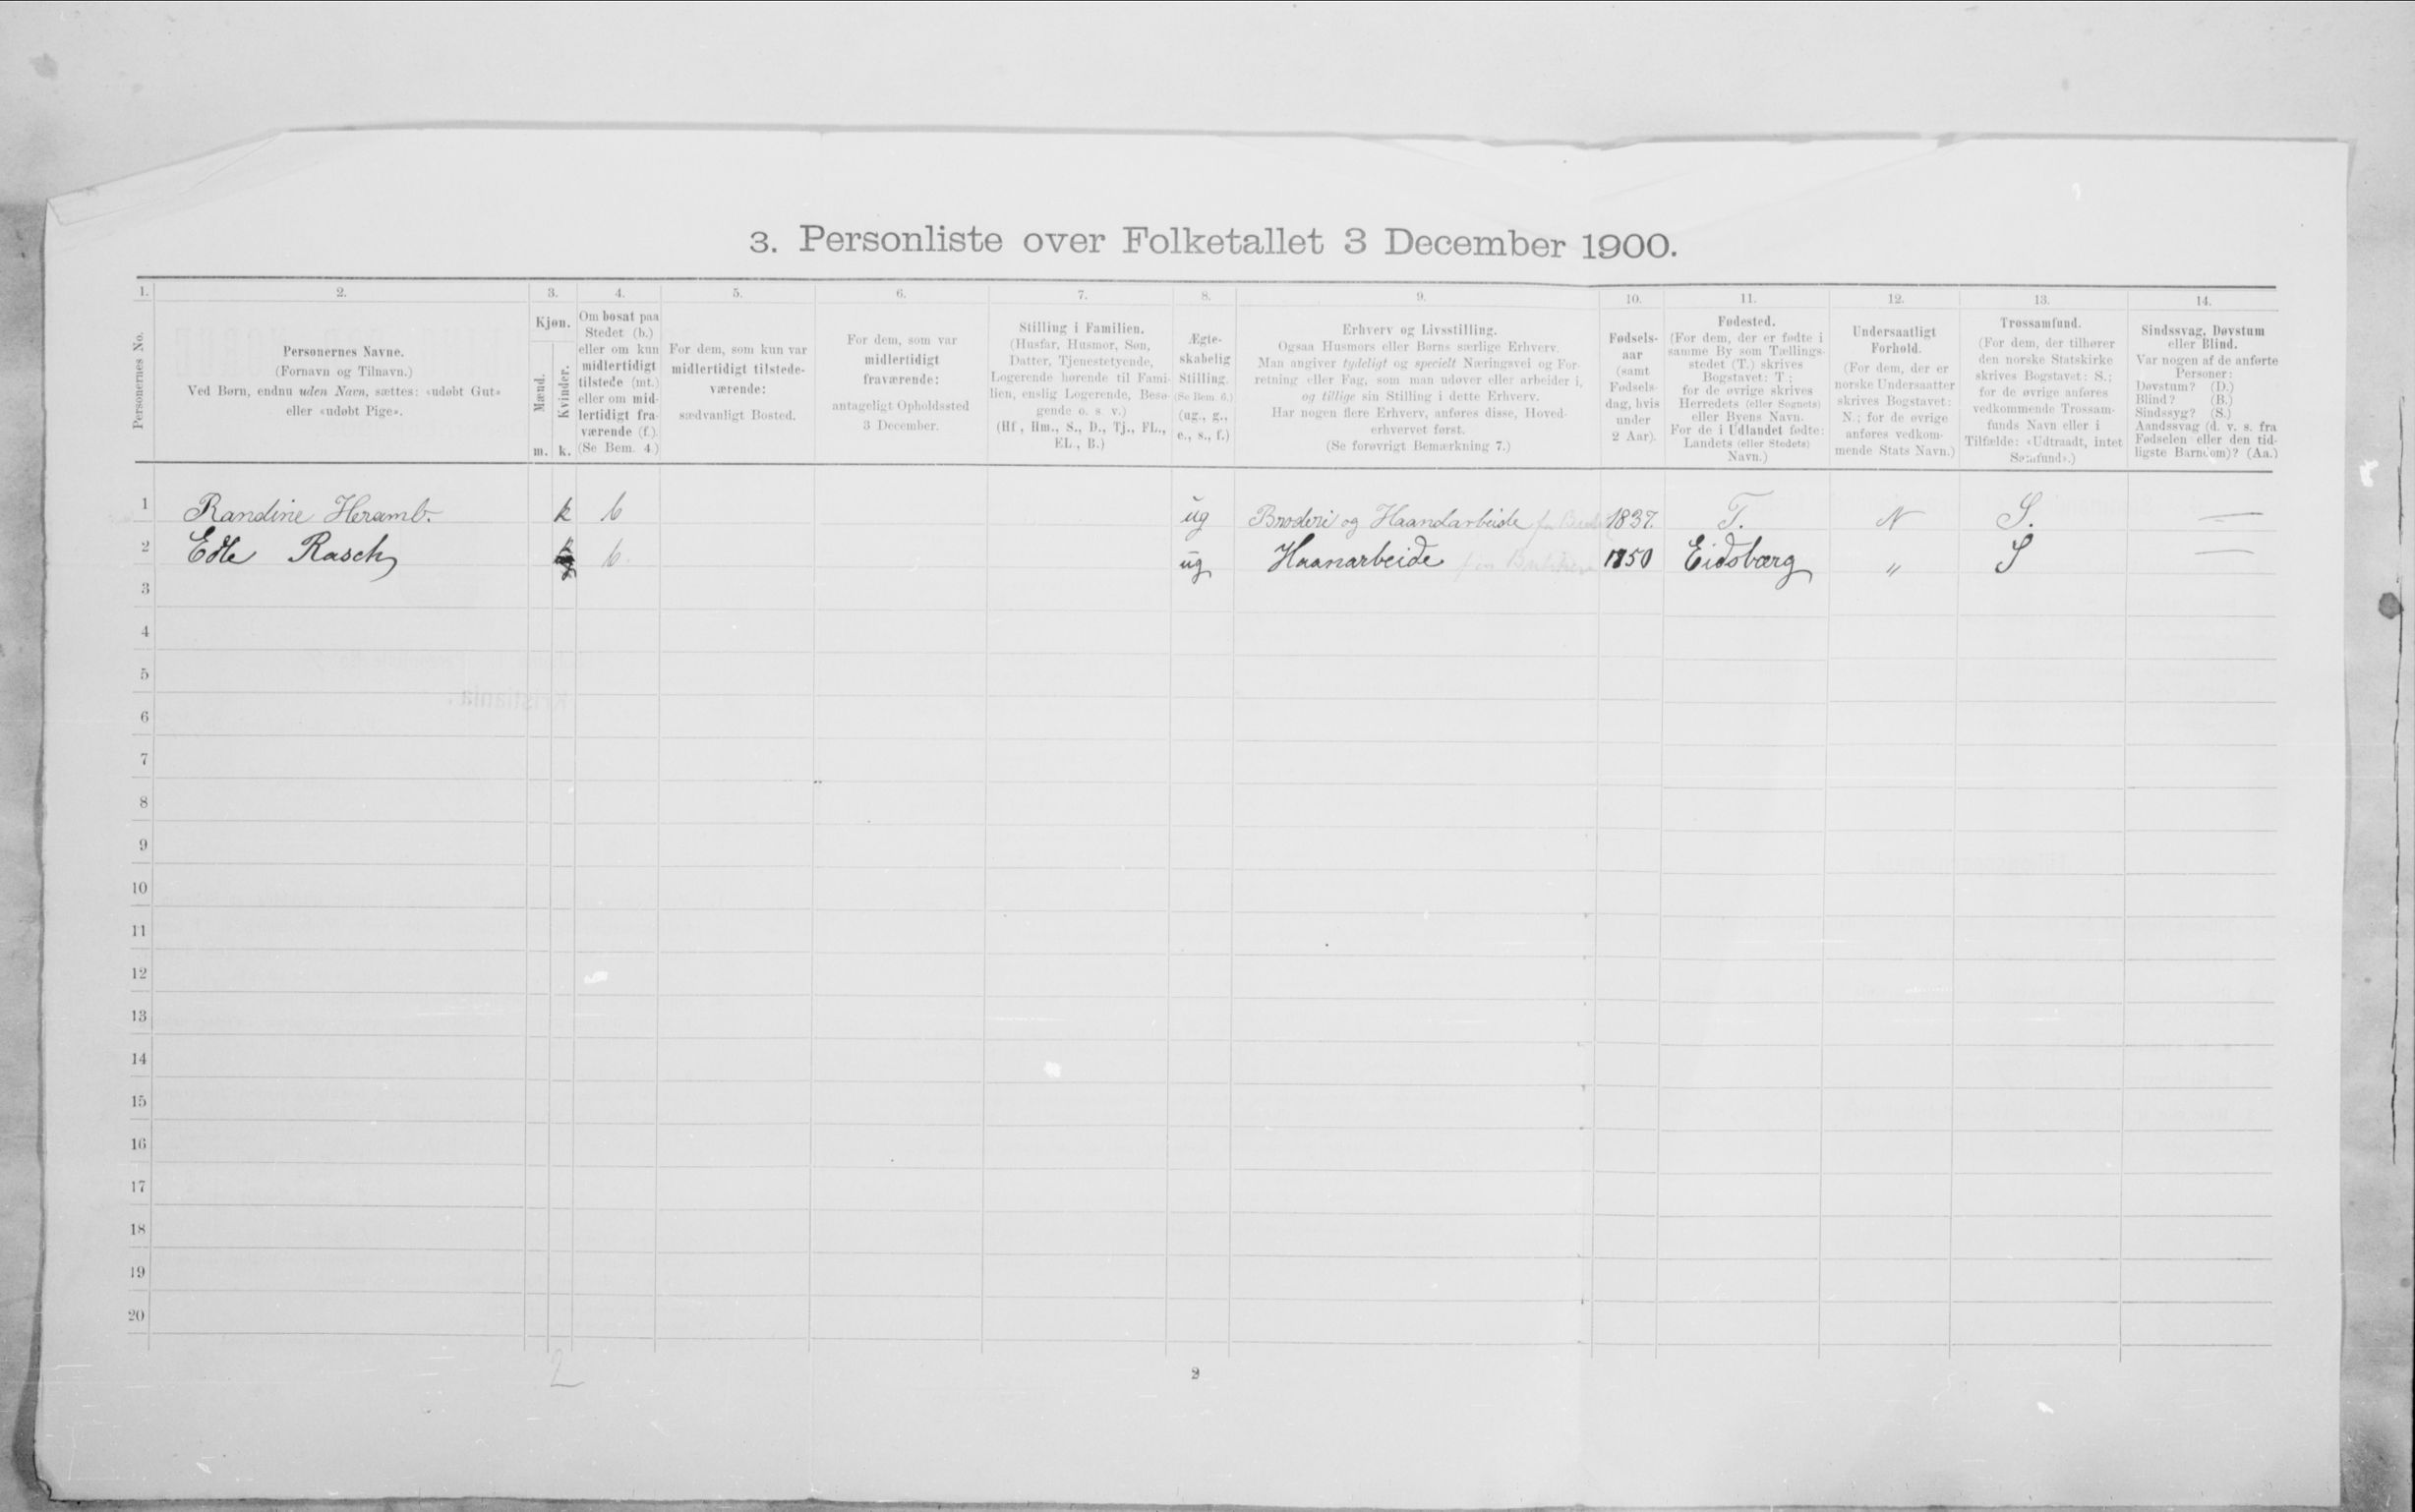 3. Personliste over Folketallet 3 December 1900.
1. 2. 3. 4. 5. 6. 7. 8. 9. 10. 11. 12. 13. 14.
Personernes No.
Personernes Navne.
(Fornavn og Tilnavn.)
Ved Børn, endnu uden Navn, sættes: «udøbt Gut»
eller «udøbt Pige».
Kjøn.
Mænd.
Kvinder.
m. k.
Om bosat paa
Stedet (b.)
eller om kun
midlertidigt
tilstede (mt.)
eller om mid-
lertidigt fra-
værende (f.).
(Se Bem. 4.)
For dem, som kun var
midlertidigt tilstede-
værende:
sædvanligt Bosted.
For dem, som var
midlertidigt
fraværende:
antageligt Opholdssted
3 December.
Stilling i Familien.
(Husfar, Husmor, Søn,
Datter, Tjenestetyende,
Logerende hørende til Fami-
lien, enslig Logerende, Besø-
gende o. s. v.)
(Hf., Hm., S., D., Tj., FL.,
EL., B.)
Ægte-
skabelig
Stilling.
(Se Bem. 6.)
(ug., g.,
e., s., f.)
Erhverv og Livsstilling.
Ogsaa Husmors eller Børns særlige Erhverv.
Man angiver tydeligt og specielt Næringsvei og For-
retning eller Fag, som man udøver eller arbeider i,
og tillige sin Stilling i dette Erhverv.
Har nogen flere Erhverv, anføres disse, Hoved-
erhvervet først.
(Se forøvrigt Bemærkning 7.)
Fødsels-
aar
(samt
Fødsels-
dag, hvis
under
2 Aar).
Fødested.
(For dem, der er fødte i
samme By som Tællings-
stedet (T.) skrives
Bogstavet: T.;
for de øvrige skrives
Herredets (eller Sognets)
eller Byens Navn.
For de i Udlandet fødte:
Landets (eller Stedets)
Navn.)
Undersaatligt
Forhold.
(For dem, der er
norske Undersaatter
skrives Bogstavet:
N.; for de øvrige
anføres vedkom-
mende Stats Navn.)
Trossamfund.
(For dem, der tilhører
den norske Statskirke
skrives Bogstavet: S.;
for de øvrige anføres
vedkommende Trossam-
funds Navn eller i
Tilfælde: «Udtraadt, intet
Samfund».)
Sindssvag, Døvstum
eller Blind.
Var nogen af de anførte
Personer:
Døvstum? (D.)
Blind? (B.)
Sindssyg? (S.)
Aandssvag (d. v. s. fra
Fødselen eller den tid-
ligste Barndom)? (Aa.)
1 Randine Heramb. k b ug Broderi og Haandarbeide for 1837. T. N S. —
2 Edle Rasch k b ug Haanarbeide for 1850 Eidsbærg " S —
3
4
5
6
7
8
9
10
11
12
13
14
15
16
17
18
19
20
2
2